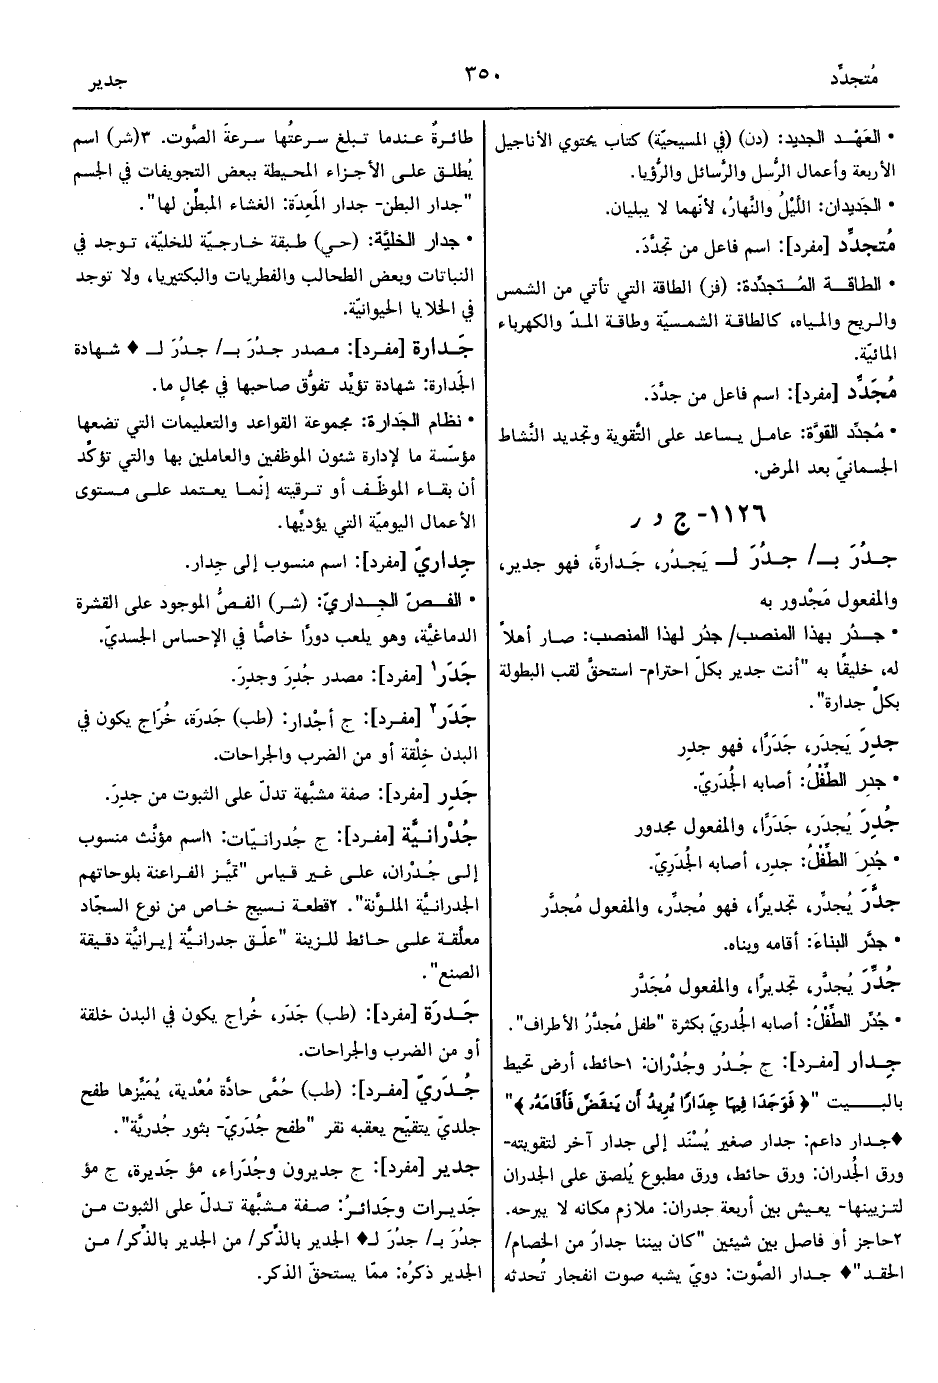 مُتجدِّد
٣٥٠
جدير
• العَهْد الجديد: (دن) (في المسيحيّة) كتاب يحتوي الأناجيل
الأربعة وأعمال الرُّسل والرَّسائل والرُّؤيا.
• الجَديدان: اللَّيْلُ والنَّهارُ، لأنّهما لا يبليان.
مُتجدِّد [مفرد]: اسم فاعل من تجدَّدَ.
• الطاقـة المُـتجدِّدة: (فز) الطاقة التي تأتي من الشمس
والريح والمياه، كالطاقة الشمسيّة وطاقة المدّ والكهرباء
المائيّة.
مُجَدِّد [مفرد]: اسم فاعل من جدَّدَ.
• مُجدِّد القوَّة: عامل يساعد على التَّقوية وتجديد النَّشاط
الجسمانيّ بعد المرض.
١١٢٦- ج د ر
جـدُرَ بـ/ جـدُرَ لـ يَجدُر، جَدارةً، فهو جدير،
والمفعول مَجْدور به
• جـدُر بهذا المنصب/ جدُر لهذا المنصب: صار أهلاً
له، خليقًا به "أنت جدير بكلّ احترام- استحقَّ لقب البطولة
بكلّ جدارة".
جدِرَ يَجدَر، جَدَرًا، فهو جدِر
• جدِر الطِّفْلُ: أصابه الجُدَريّ.
جُدِرَ يُجدَر، جَدَرًا، والمفعول مجدور
• جُدِرَ الطِّفْلُ: جدِر، أصابه الجُدَريّ.
جدَّرَ يُجدِّر، تجديرًا، فهو مُجدِّر، والمفعول مُجدَّر
• جدَّر البناءَ: أقامه وبناه.
جُدِّرَ يُجدَّر، تجديرًا، والمفعول مُجَدَّر
• جُدِّر الطِّفْلُ: أصابه الجُدريّ بكثرة "طفل مُجدَّرُ الأطراف".
جِدار [مفرد]: ج جُدُر وجُدْران: ١حائط، أرض تحيط
بالبـيت "﴿ فَوَجَدَا فِيهَا جِدَارًا يُرِيدُ أَن يَنقَضَّ فَأَقَامَهُۥ ﴾"
♦جـدار داعم: جدار صغير يُسْنَد إلى جدار آخر لتقويته-
ورق الجُدران: ورق حائط، ورق مطبوع يُلصق على الجدران
لتزيينها- يعيش بين أربعة جدران: ملازم مكانه لا يبرحه.
٢حاجز أو فاصل بين شيئين "كان بيننا جدارٌ من الخصام/
الحقد"♦ جـدار الصَّوت: دويّ يشبه صوت انفجار تُحدثه
طائرةٌ عندما تـبلغ سرعتُها سرعةَ الصَّوت. ٣(شر) اسم
يُطلـق علـى الأجزاء المحيطة ببعض التجويفات في الجسم
"جدار البطن- جدار المَعِدَة: الغشاء المبطِّن لها".
• جدار الخليَّة: (حـي) طبقة خارجـيّة للخليّة، تـوجد في
النباتات وبعض الطحالب والفطريات والبكتيريا، ولا توجد
في الخلايا الحيوانيّة.
جَـدارة [مفـرد]: مـصدر جـدُرَ بـ/ جـدُرَ لـ ♦ شـهادة
الجَدارة: شهادة تؤيِّد تفوُّق صاحبها في مجالٍ ما.
• نظام الجَدارة: مجموعة القواعد والتعليمات التي تضعها
مؤسّسة ما لإدارة شئون الموظفين والعاملين بها والتي تؤكِّد
أن بقـاء الموظّـف أو تـرقيته إنّمـا يعـتمد علـى مـستوى
الأعمال اليوميّة التي يؤديِّها.
جِداريّ [مفرد]: اسم منسوب إلى جِدار.
• الفـصّ الجـداريّ: (شـر) الفـصُّ الموجود على القشرة
الدماغيَّة، وهو يلعب دورًا خاصًّا في الإحساس الجسديّ.
جَدَر١ [مفرد]: مصدر جُدِرَ وجدِرَ.
جَدَر٢ [مفـرد]: ج أجْدار: (طب) جَدَرَة، خُرَاج يكون في
البدن خِلْقة أو من الضرب والجراحات.
جَدِر [مفرد]: صفة مشبَّهة تدلّ على الثبوت من جدِرَ.
جُدْرانـيَّة [مفـرد]: ج جُدرانـيّات: ١اسم مؤنَّث منسوب
إلـى جُـدْران، علـى غير قـياس "تمـيَّز الفـراعنة بلوحاتهم
الجدرانـيَّة الملـوَّنة". ٢قطعـة نسيج خـاص من نوع السجّاد
معلَّقـة علـى حـائط للـزينة "علّـق جدرانـيَّة إيـرانيَّة دقـيقة
الصنع".
جَـدَرَة [مفرد]: (طب) جَدَر، خُراج يكون في البدن خلقة
أو من الضرب والجراحات.
جُـدَرِيّ [مفرد]: (طب) حُمَّى حادَّة مُعْدية، يُمَيِّزها طفح
جلديّ يتقيّح يعقبه نقر "طفح جُدَريّ- بثور جُدريَّة".
جدير [مفرد]: ج جديرون وجُدَراء، مؤ جَديرة، ج مؤ
جَديـرات وجَدائـرُ: صفة مشبَّهة تـدلّ على الثبوت مـن
جدُرَ بـ/ جدُرَ لـ♦ الجدير بالذِّكر/ من الجدير بالذِّكر/ مـن
الجدير ذكرُه: ممّا يستحقّ الذكر.